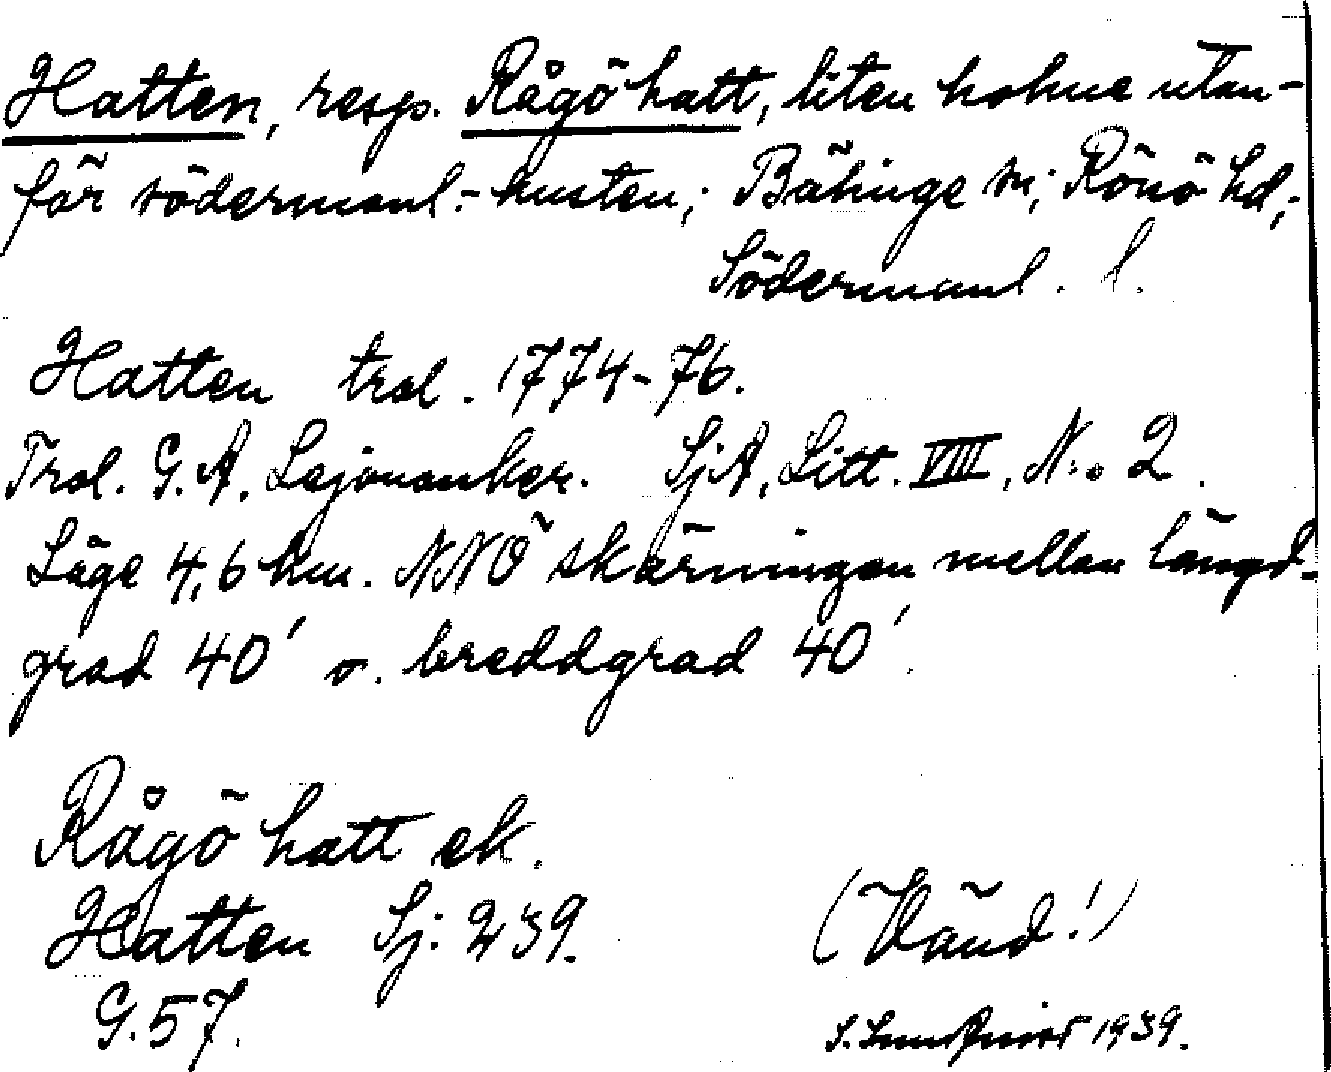 Hatten, resp. Rågö hatt, liten holme utan-
för södermanl.-kusten; Bälinge sn; Rönö hd,;
Södermanl. l.
Hatten trol. 1774-76.
Trol. G. A. Lejonanker. SjA, Litt. VIII, N:o 2.
Läge 4,6 km. NNÖ skärningen mellan längd-
grad 40' o. breddgrad 40'.
Rågö hatt ek.
Hatten Sj: 239.
G. 57.
(Vänd!)
S. Lundqvist 1939.